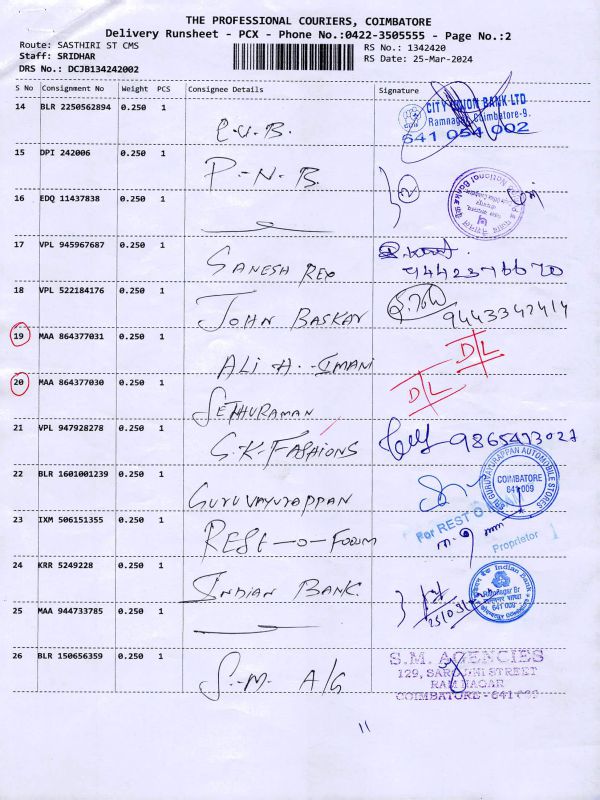 THE PROFESSIONAL COURIERS, COIMBATORE
Delivery Runsheet - PCX - Phone No.:0422-3505555 - Page No.:2
Route: SASTHIRI ST CMS
RS No.: 1342420
Staff: SRIDHAR
RS Date: 25-Mar-2024
DRS No.: DCJB134242002
S No Consignment No Weight PCS Consignee Details Signature
14 BLR 2250562894 0.250 1 C.U.B.
CITY UNION BANK LTD
Ramnagar, Coimbatore-9.
641 054 002
15 DPI 242006 0.250 1 P-N-B. 2
16 EDQ 11437838 0.250 1
17 VPL 945967687 0.250 1 GANESH REY
9442376670
18 VPL 522184176 0.250 1 JOHN BASKAR
19 MAA 864377031 0.250 1 ALI H.-IMANI D/L
20 MAA 864377030 0.250 1 SETHURAMAN D/L
21 VPL 947928278 0.250 1 S.K-FASHIONS
22 BLR 1601001239 0.250 1 GURUVAYURAPPAN
SRI GURUVAYURAPPAN AUTOMOBILE STORES
COIMBATORE
641 009
23 IXM 506151355 0.250 1 REST-O-FOUM
For REST O
Proprietor
24 KRR 5249228 0.250 1 INDIAN BANK.
Indian Bank
Ramnagar Br
641 009
25 MAA 944733785 0.250 1
26 BLR 150656359 0.250 1 S.-M. A/G
S.M. AGENCIES
129, SAROJINI STREET
RAM NAGAR
COIMBATORE - 641 009
11